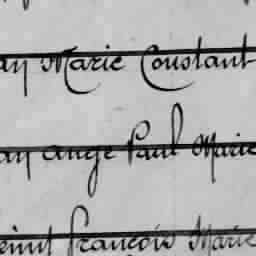 an Marie Constant
an ange Paul Marie
françois Marie